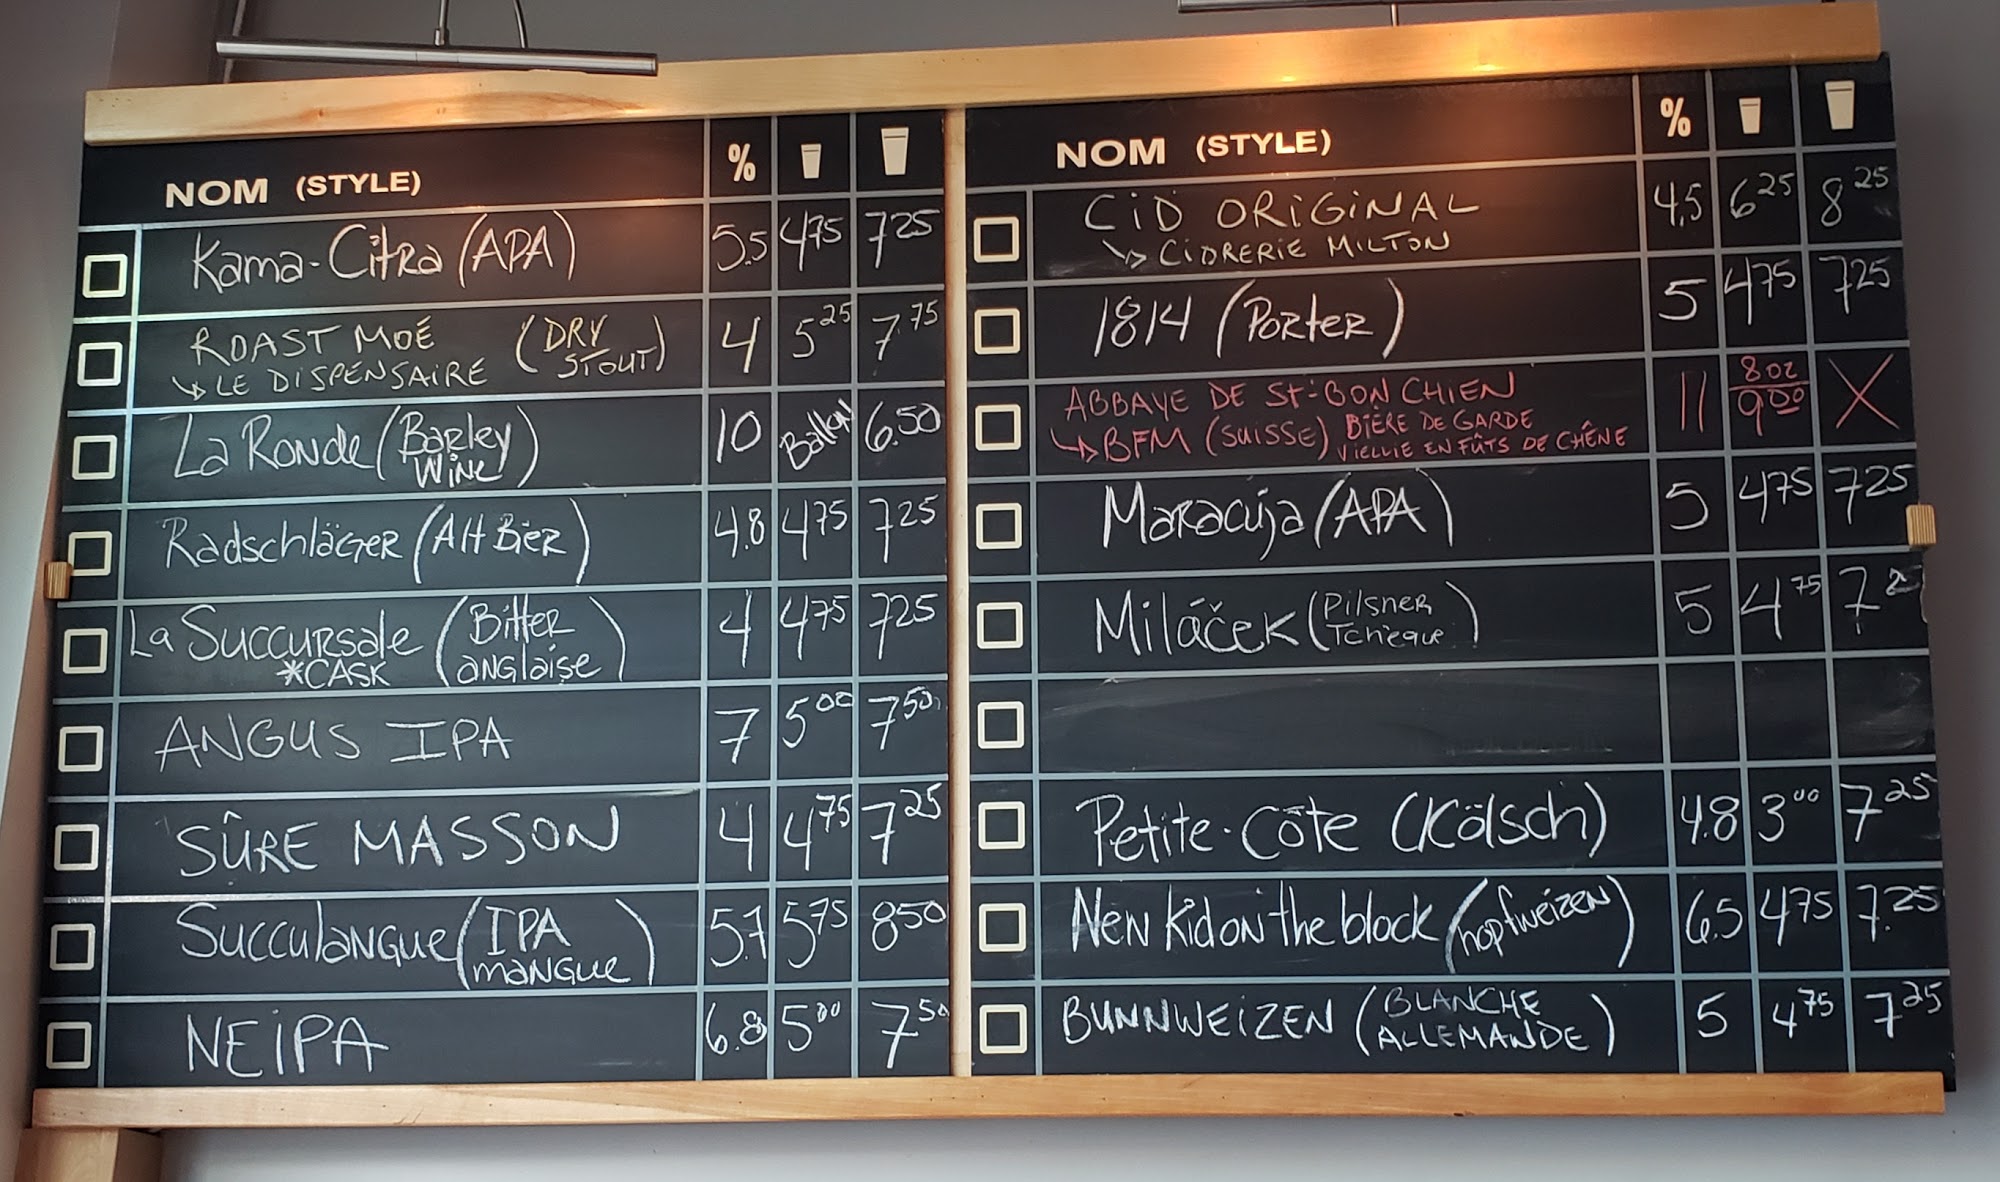 NOM (STYLE) %
Kama-Citra (APA) 5.5 4.75 7.25
ROAST MOÉ (DRY STOUT) 4 5.25 7.75
↳ LE DISPENSAIRE
La Ronde (Barley Wine) 10 Ballon 6.50
Radschläger (Alt Bier) 4.8 4.75 7.25
La Succursale (Bitter anglaise) 4 4.75 7.25
*CASK
ANGUS IPA 7 5.00 7.50
SÛRE MASSON 4 4.75 7.25
Succulangue (IPA mangue) 5.7 5.75 8.50
NEIPA 6.8 5.00 7.50
NOM (STYLE) %
CiD ORiGiNAL 4.5 6.25 8.25
↳ CiDRERIE MILTON
1814 (Porter) 5 4.75 7.25
ABBAYE DE St-BON CHIEN 11 8oz 9.00 X
↳ BFM (SUISSE) BIÈRE DE GARDE
VIELLIE EN FÛTS DE CHÊNE
Maracuja (APA) 5 4.75 7.25
Miláček (Pilsner Tchèque) 5 4.75 7.2
Petite-Côte (Kölsch) 4.8 3.00 7.25
New Kid on the block (hopfweizen) 6.5 4.75 7.25
BUNNWEiZEN (BLANCHE ALLEMANDE) 5 4.75 7.25